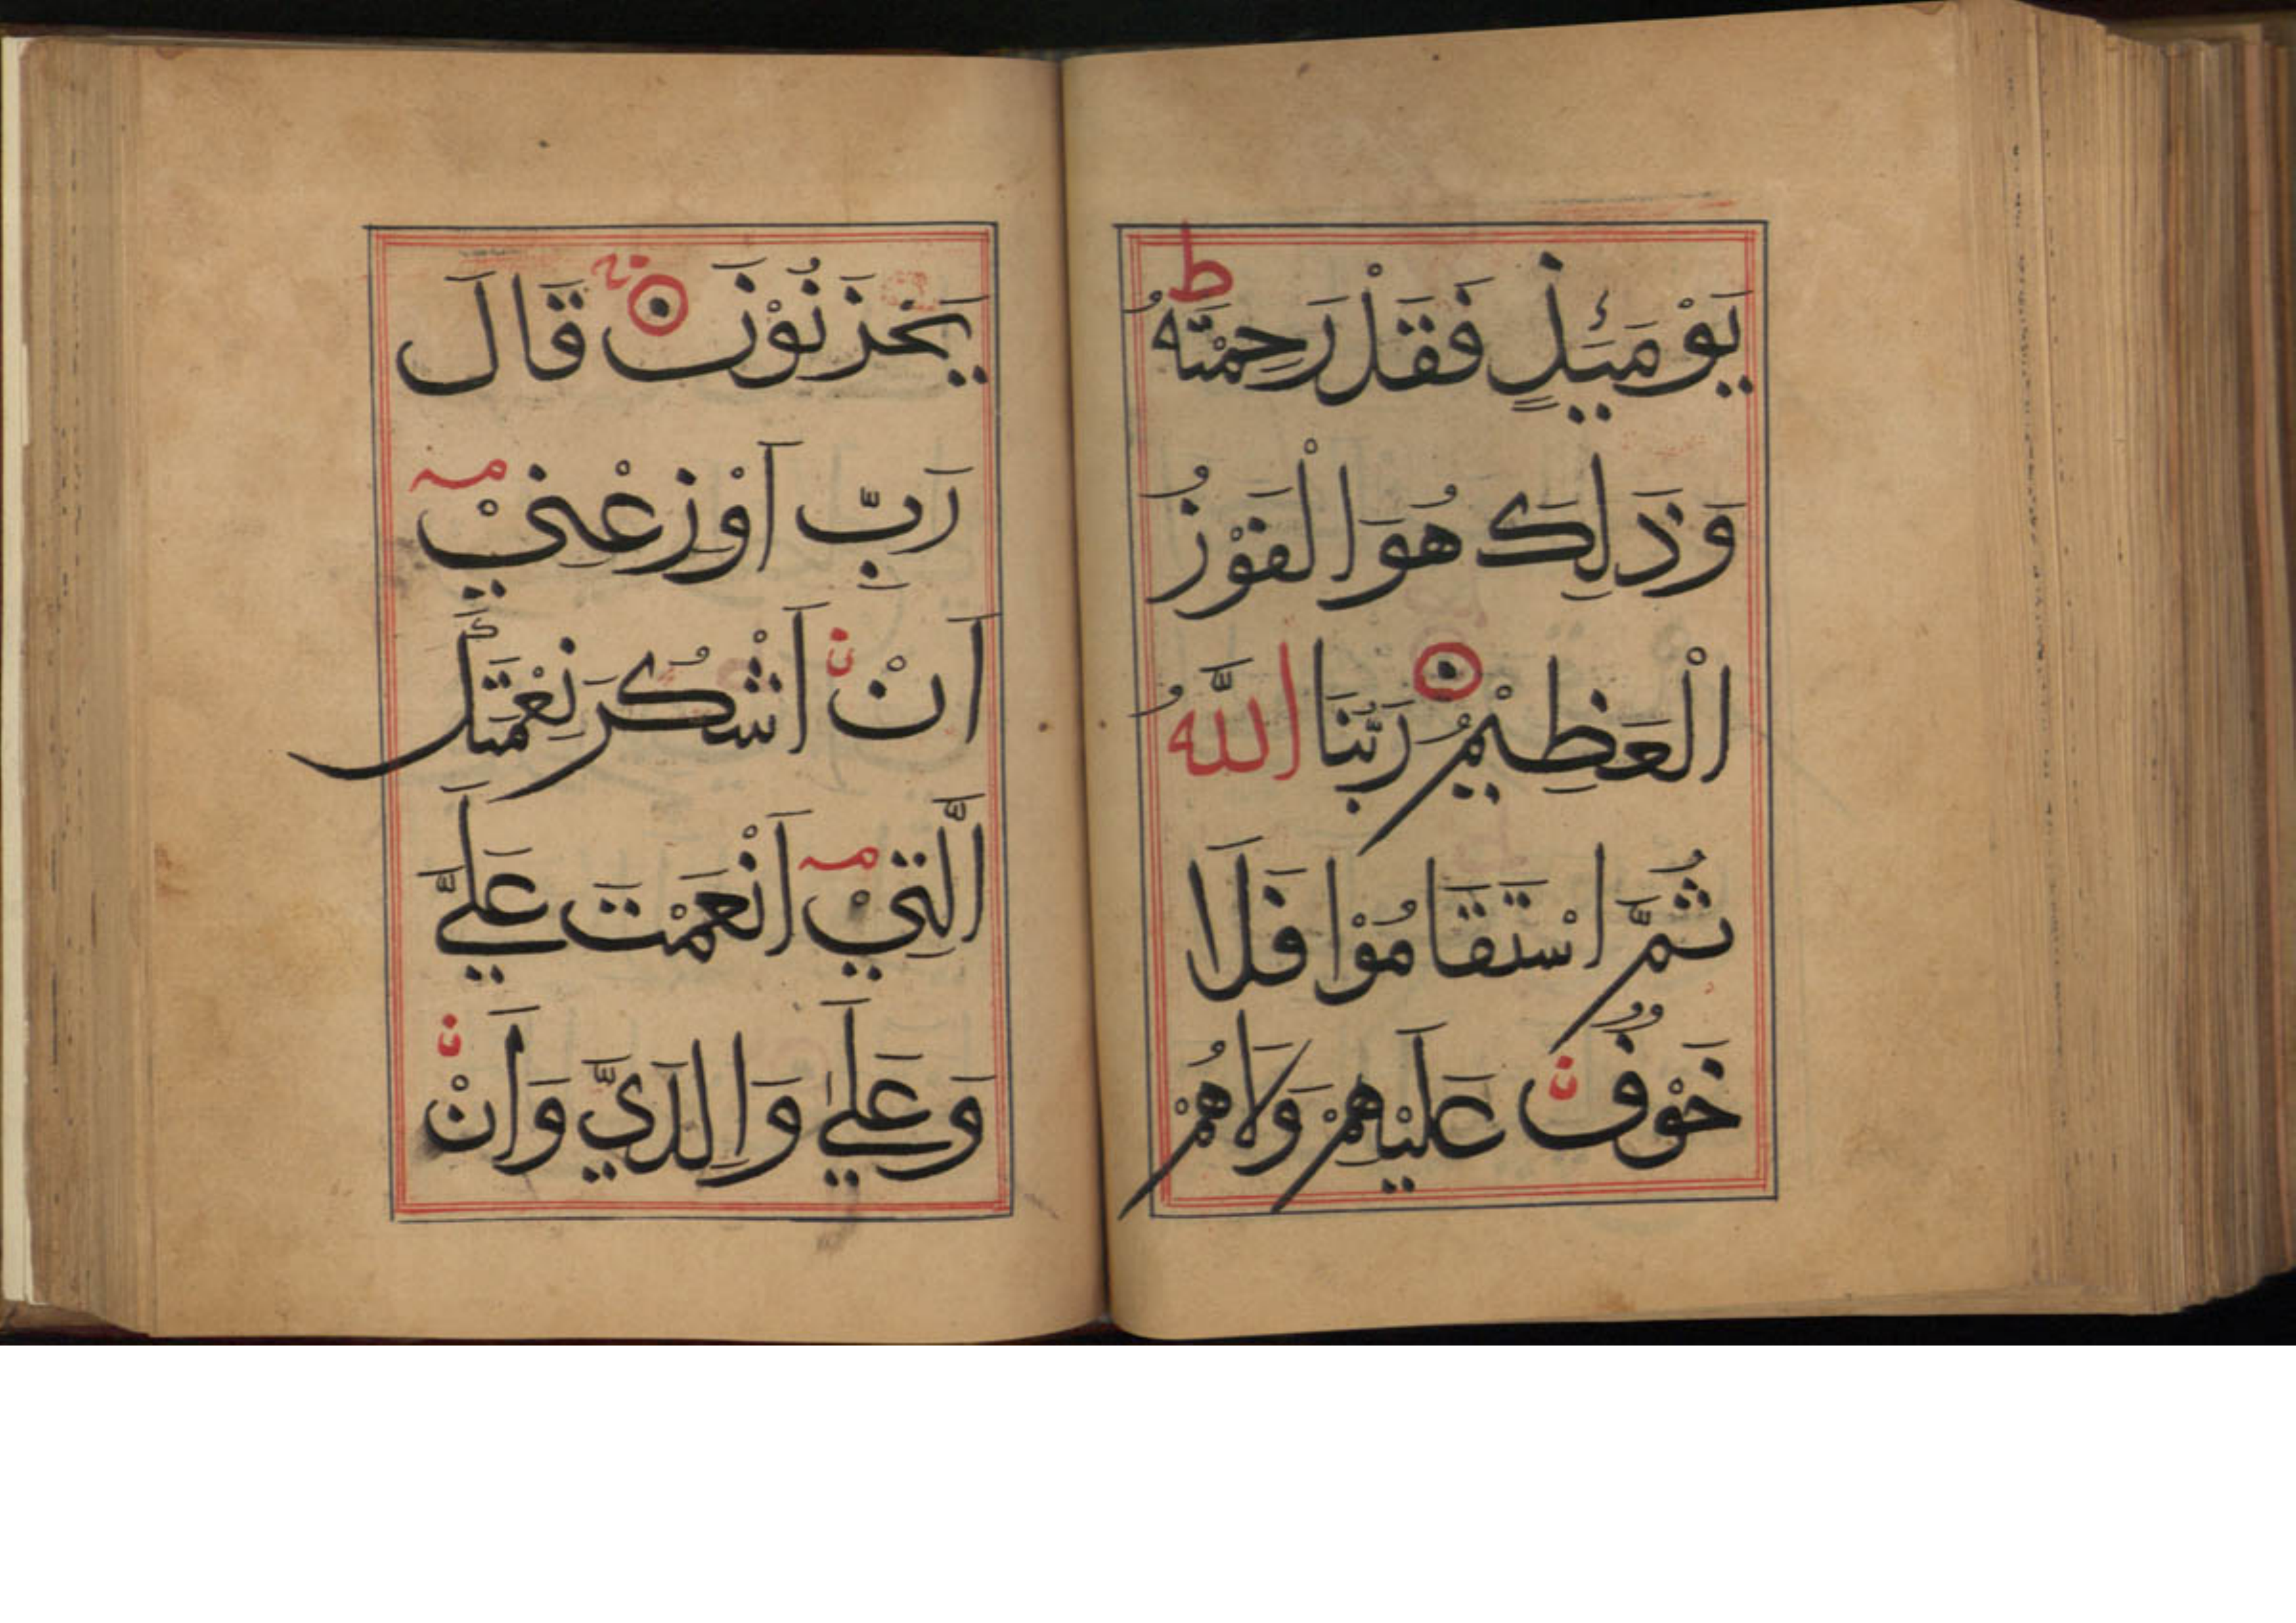 يَوْمَئِذٍ فَقَدْ رَحِمْتَهُ ط
وَذَلِكَ هُوَ الْفَوْزُ
الْعَظِيْمُ رَبُّنَا اللَّهُ
ثُمَّ اسْتَقَامُوْا فَلَا
خَوْفٌ عَلَيْهِمْ وَلَاهُمْ
يَحْزَنُوْنَ قَالَ
رَبِّ اَوْزِعْنِيْ
اَنْ اَشْكُرَ نِعْمَتَكَ
الَّتِيْ اَنْعَمْتَ عَلَيَّ
وَعَلٰي وَالِدَيَّ وَاَنْ